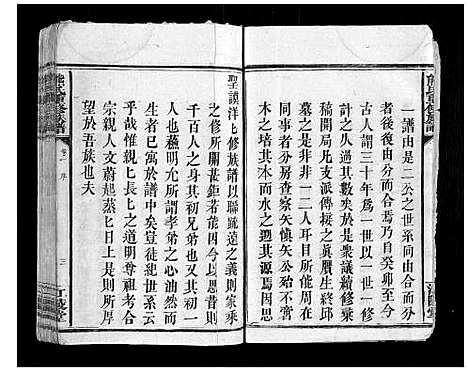 一譜由是二公之世系由合而分
者後復由分而合焉乃自癸卯至合
古人謂三十年爲一世以一世一修
計之久過其數矣於是衆議續修彙
稿開局凡支派傳接之眞贋生終邱
墓之是非非一二人耳目所能周在
同事者分房查察矢愼矢公殆不啻
木之培其本而水之濬其源焉因思
聖謨洋〻修族譜以聯疏遠之義則家乘
之修所關甚鉅若能因今以思昔由
千百人之身溯而至於一人又其初
也蘇明允所謂孝弟之心油然而
生者已寓於譜中矣豈徒紀世系云
乎哉惟親〻長〻之道明尊祖考合
宗親人文蔚起蒸〻日上是則所厚
望於吾族也夫
熊氏重修族譜
卷一 序
三